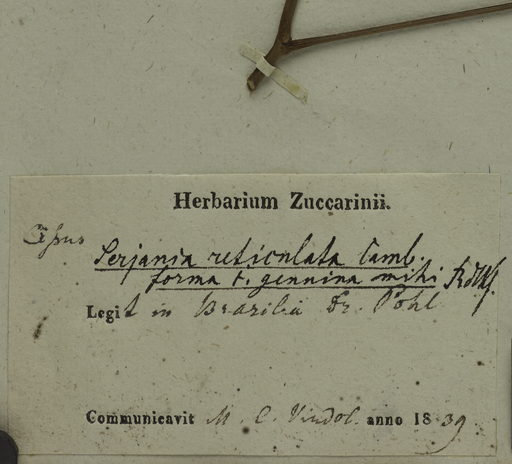 Herbarium Zuccarinii.
Serjania reticulata Camb.
forma 1. genuina mihi Rdlkf.
Legit in Brasilia Dr. Pohl
Communicavit M. C. Vindob. anno 1839